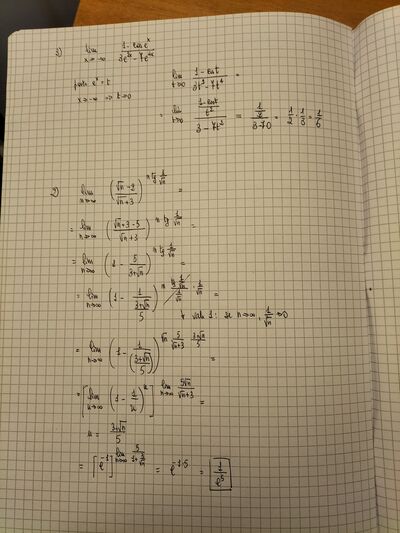 1) lim x→-∞ (1-cos e^x)/(3e^{2x} - 7e^{4x})
e^x = t lim t→0 (1-cos t)/(3t^2 - 7t^4) =
x→-∞ => t→0
= lim t→0 ((1-cos t)/t^2)/(3-7t^2) = (1/2)/(3-7·0) = 1/2 · 1/3 = 1/6
2) lim n→∞ ((√n-2)/(√n+3))^{n tg 1/√n} =
= lim n→∞ ((√n+3-5)/(√n+3))^{n tg 1/√n} =
= lim n→∞ (1 - 5/(3+√n))^{n tg 1/√n} =
= lim n→∞ (1 - 1/((3+√n)/5))^{n (tg 1/√n)/(1/√n) · 1/√n} =
vale 1: se n→∞, 1/√n →0
= lim n→∞ (1 - 1/((3+√n)/5))^{√n · 5/(√n+3) · (3+√n)/5} =
= [lim u→∞ (1 - 1/u)^u]^{lim n→∞ 5√n/(√n+3)} =
u = (3+√n)/5
= [e^{-1}]^{lim n→∞ 5/(1+3/√n)} = e^{-1·5} = 1/e^5